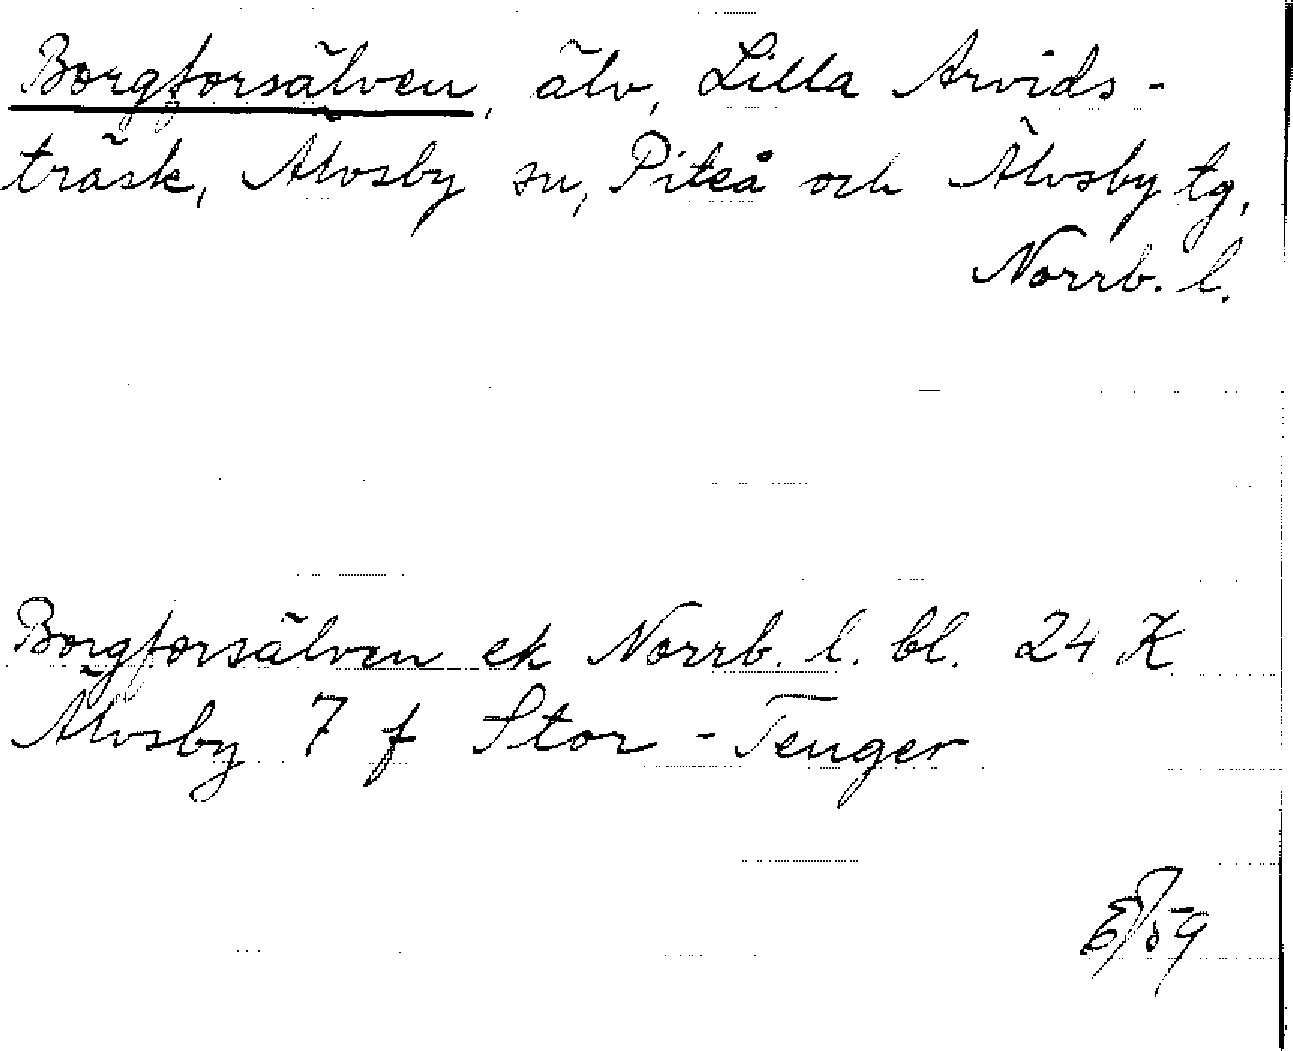 Borgforsälven, älv, Lilla Arvids-
träsk, Älvsby sn, Piteå och Älvsby tg,
Norrb. l.
Borgforsälven ek Norrb. l. bl. 24 K
Älvsby 7 f Stor-Tenger